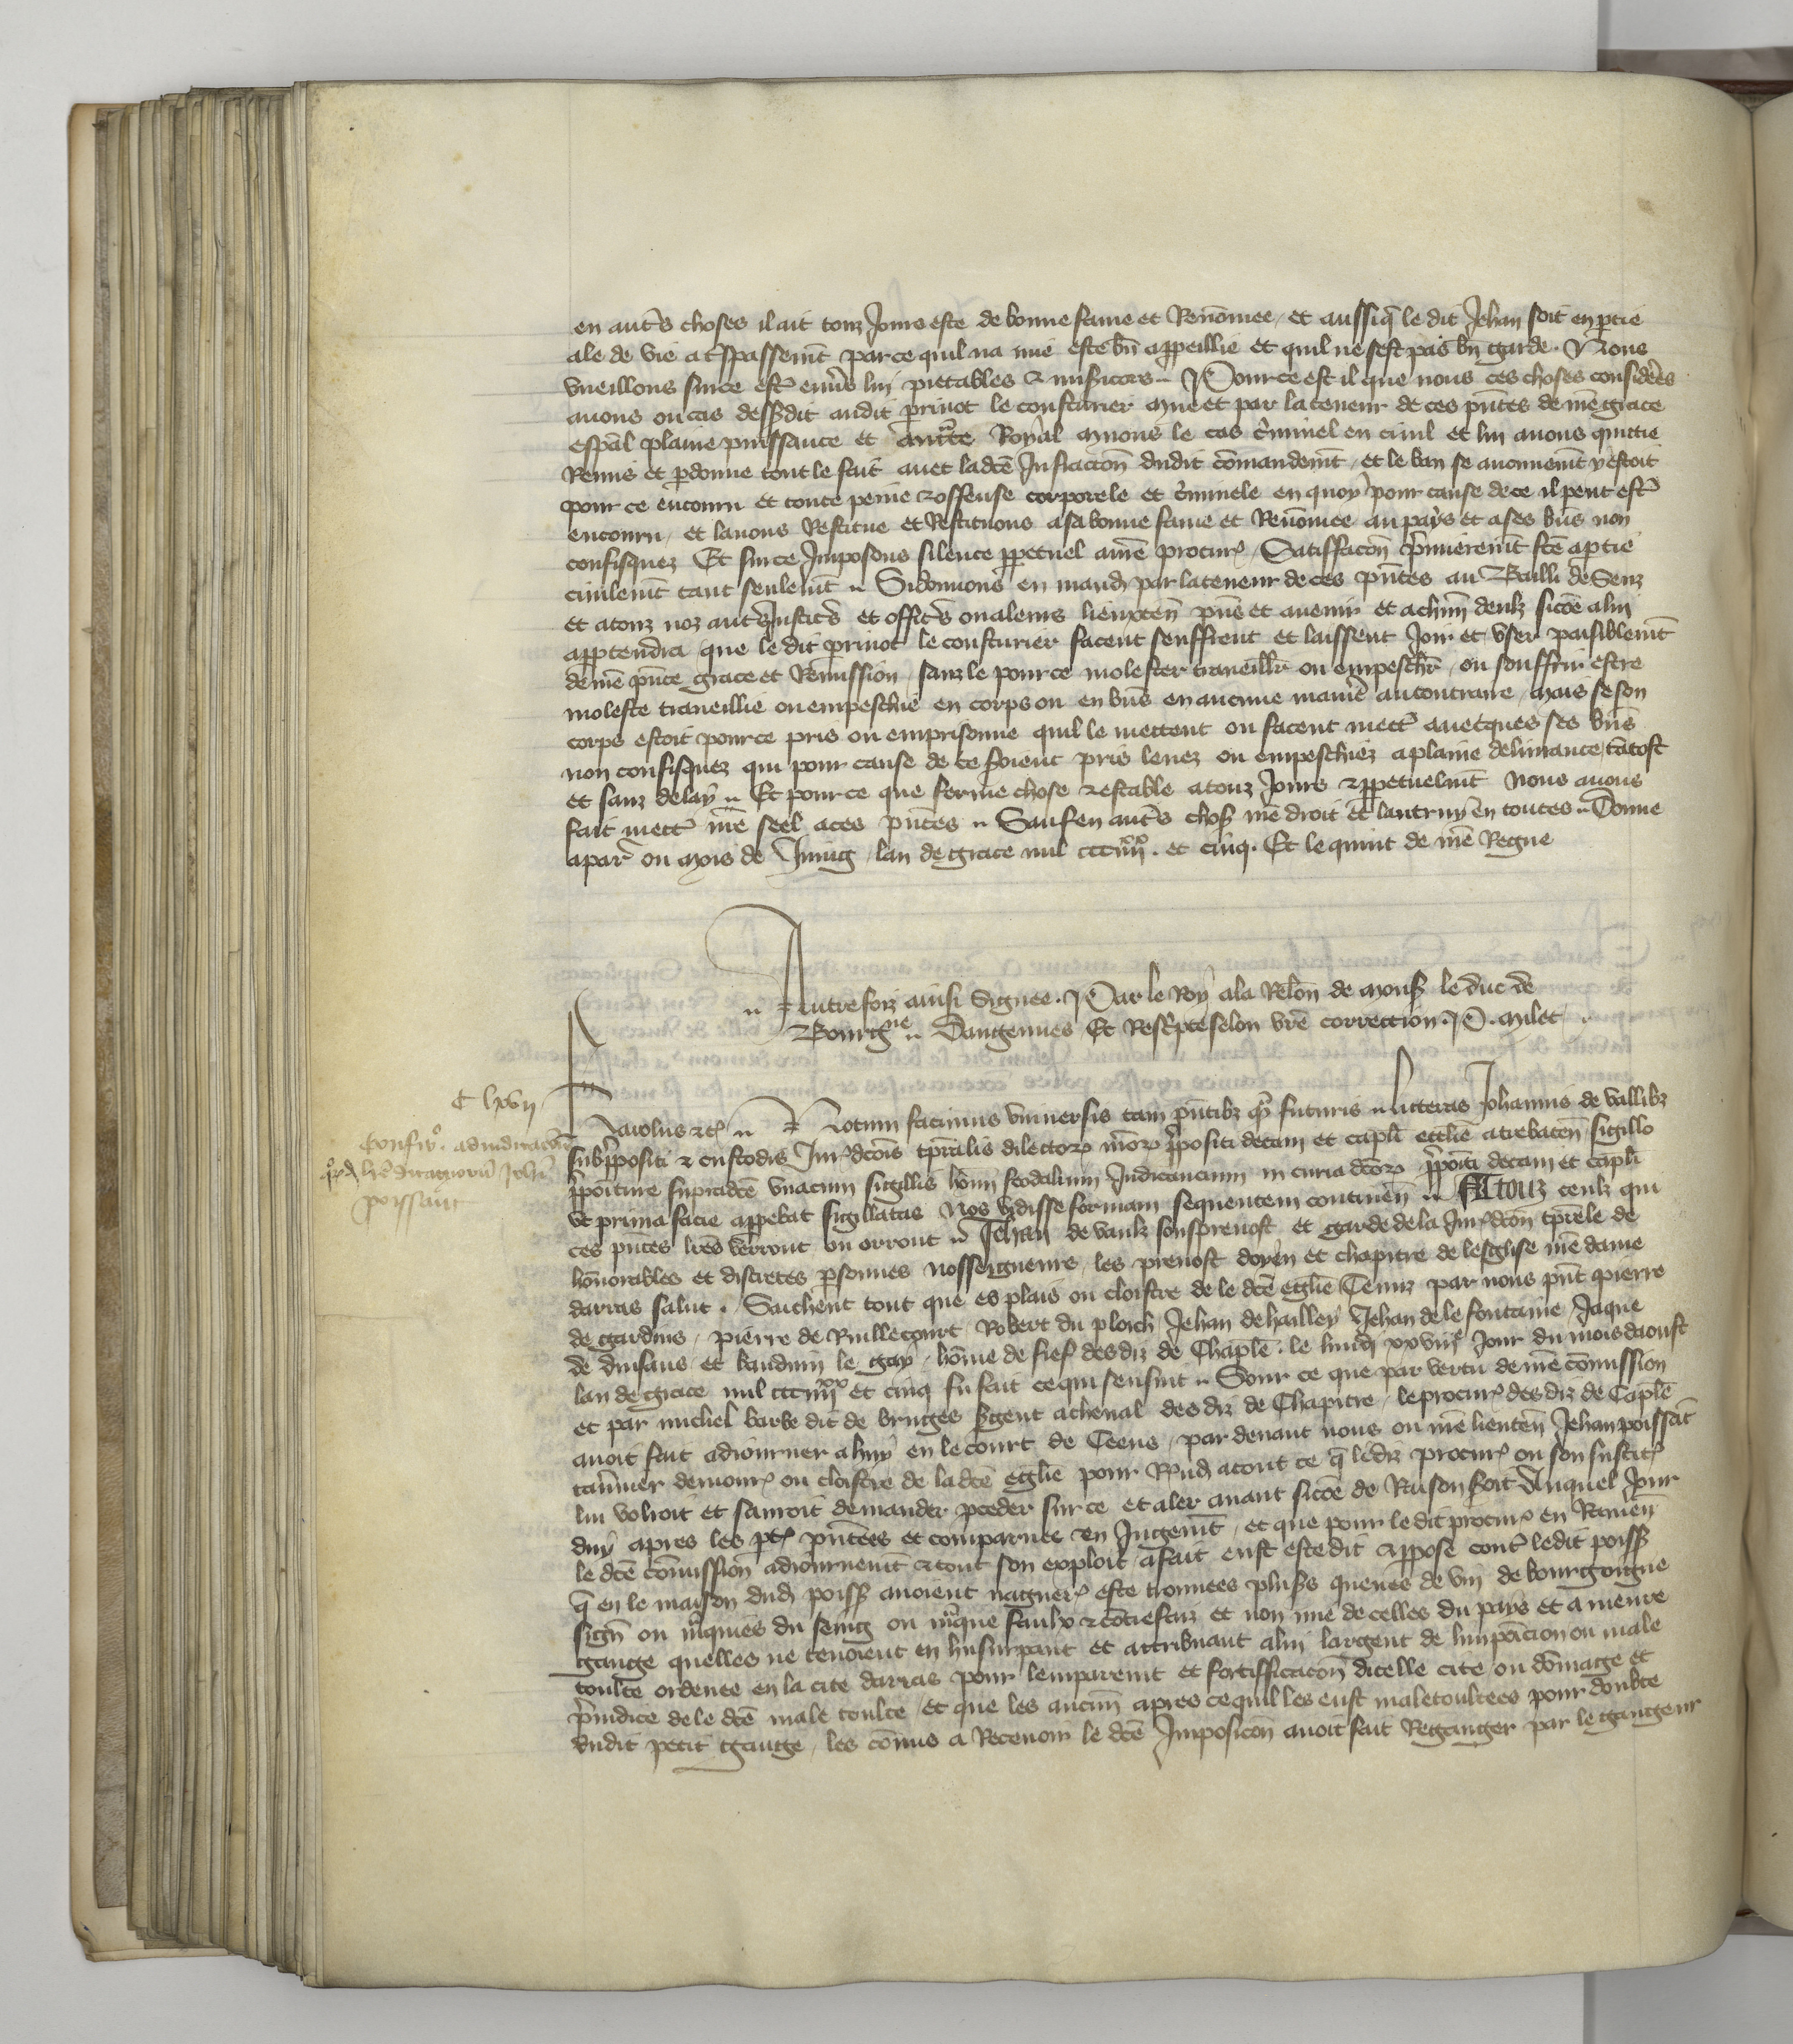 en autrs choses il ait touz Jours este de bonne fame et Renōmee, et aussi q̄ le dit Jehan soit en ptie
ale de vie a trspassemt par ce quil na mie este bn̄ appeillie et quil ne sest pas bn̄ garde. Nous
vueillons sur ce estr enūs lui pietables & misicors .. Pour ce est il que nous ces choses considēes
auons ou cas dessdit audit priuot le cousturier mue et par la teneur de ces pn̄tes de nre grace
espal plaine puissance et auctte Royal muons le cas criminel en ciuil et lui auons quictie
Remis et pdonne tout le fait auec la dce Infraccion dudit cōmandemt, et le ban se aucunemt y estoit
pour ce encouru et toute peine & offense corporele et criminele en quoy pour cause de ce il peut estr
encouru, et lauons Restitue et Restituons a sa bonne fame et Renōmee au pays et a ses bn̄s non
confisquez Et sur ce Imposons silence ppetuel a nre procur, Satisfacon premieremt fce a ptie
ciuilemt tant seulemt .. Si donnons en mand par la teneur de ces pn̄tes au Bailli de Senz
et a touz noz autrs Justicrs et officrs ou a leurs lieuxten pn̄s et auenir et a chūn deulz sicōe a lui
apptendra que le dit priuot le cousturier facent seuffrent et laissent Joir et vser paisiblemt
de nre pn̄te grace et Remission sanz le pour ce molester traueillr ou empeschr, ou souffrir estre
moleste traueillie ou empeschie en corps ou en bn̄s en aucune manie au contraire, mais se son
corps estoit pour ce pris ou emprisonne quil le mettent ou facent mectr auecques ses bn̄s
non confisquez qui pour cause de ce soient pris leuez ou empeschiez a plaine deliurance, tātost
et sanz delay .. Et pour ce que ferme chose & estable a touz Jours & ppetuelmt Nous auons
fait mectr nre seel a ces pn̄tes .. Sauf en autrs chos nre droit et lautruy en toutes .. Donne
a par ou mois de Juing, lan de grace mil ccciiijxx. et cinq. Et le quint de nre Regne
.. Autrefoiz ainsi Signee. Par le Roy a la Relon de mons le duc de
Bourgne .. Dangennes Et Rescripte selon vre correction. P. milet ..
C lxvij
Confir. adiudicacois
Johis
poissant
Karolus &c .. Notum facimus vniuersis tam pn̄tibz qm futuris .. litteras Johannis de vallibz
subppositi & custodis Jurdcois tpralis dilectorum nrorum ppositi decani et capli ecclie atrebaten sigillo
ppoiture supradce vnacum sigillis hoim feodalium Iudicancium in curia dcorum ppoiti decani et capli
vt prima facie appebat sigillatas Nos vidisse formam sequentem continen .. A touz ceulz qui
ces pn̄tes lres verront ou orront .. Jehan de vaulz sousprenost et garde de la Jurdcon tprele de
hōnorables et discretes psonnes nosseigneurs, les preuost doyen et chapitre de lesglise nre dame
darras salut. Saichent tout que es plais ou cloistre de le dce eglie Tenuz par nous pn̄t pierre
de gardins, pierre de Ruillecourt, Robert du ploich Jehan de hailley Jehan de le fontaine, Jaque
de duisans et bauduin le gay, hōme de fief des diz de Chaple. le lundi xxviije Jour du mois daoust
lan de grace mil ccciiijxx et cinq fu fait ce qui sensuit .. Sour ce que par vertu de nre cōmission
et par michel barbe dit de bruges sgent a cheual des diz de Chapitre, le procur des diz de Caple
auoit fait adiourner a huy en le court de Ceens, par deuant nous ou nre lieuten Jehan poissāt
tauernier demour ou cloistre de la dce eglie pour Rn̄d a tout ce q̄ ledit procur ou son substit
lui volroit et sauroit demander pceder sur ce et aler auant sicōe de Raison soit Auquel Jour
duy apres les pt pn̄tees et comparues en Jugemt, et que pour le dit procur en Ramen
le dce cōmission adiournemt & tout son exploit a fait eust este dit & ppose contr ledit poiss
q̄ en le maison dud poiss auoient naguer este trouuees plusrs queues de vin de bourgoigne
sign ou mquies du seing ou mque faulx & contrefaiz et non mie de celles du pays et a menre
gauge quelles ne tenoient en lusurpant et attribuant a lui largent de limpoicion ou male
toulte ordenee en la cite darras pour lemparemt et fortifficacon dicelle cite ou dōmage et
preiudice de le dce male toulte, et que les aucun apres ce quil les eust maletoultees pour doubte
dudit petit gauge, les cōmis a Receuoir le dce Imposicon auoit fait Regauger par le gaugeur